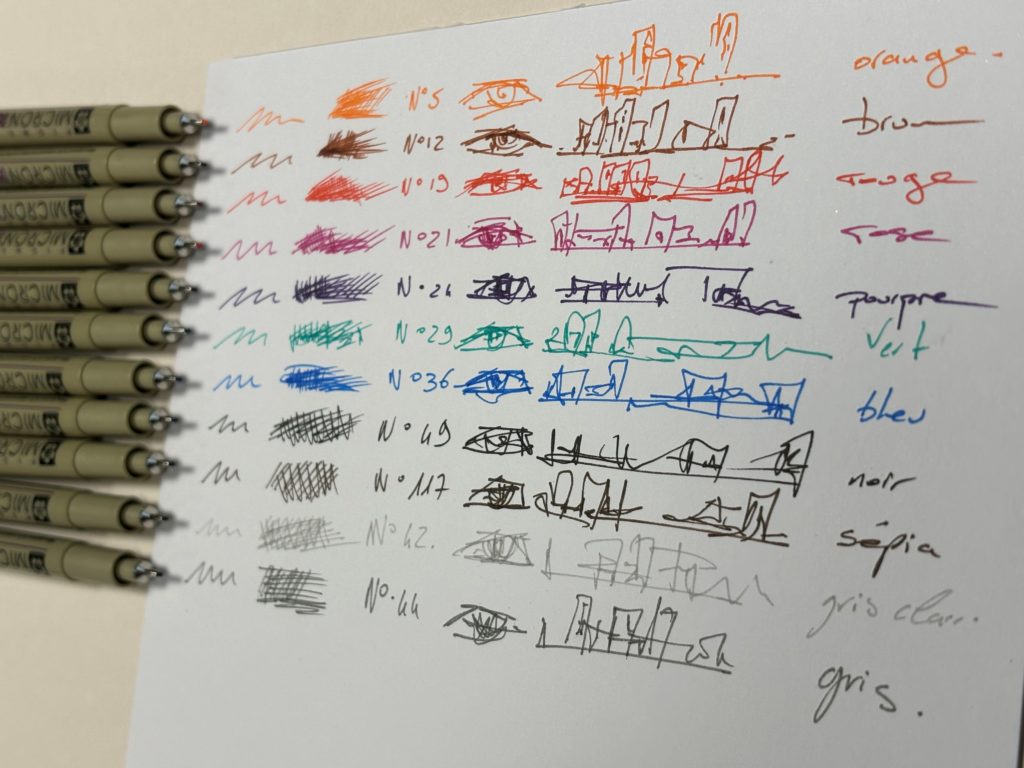 MICRON N°5 orange.
MICRON N°12 brun
MICRON N°19 rouge
MICRON N°21 rose
MICRON N°24 pourpre
MICRON N°29 vert
MICRON N°36 bleu
MICRON N°49 noir
MICRON N°117 sépia
MICRON N°42. gris clair.
MICRON N°.44 gris.